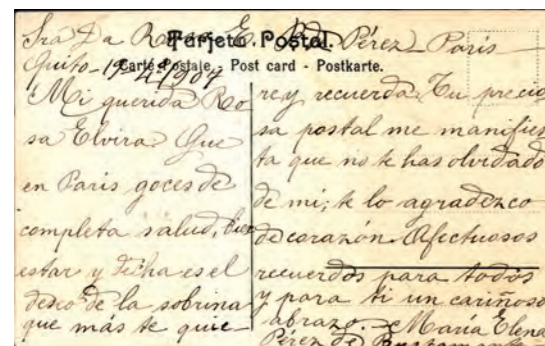 Sra Da Rosa E. de Pérez - París
Tarjeta Postal.
Carte Postale - Post card - Postkarte.
Quito - 19-4-1907
Mi querida Ro
sa Elvira: Que
en París goces de
completa salud, bien
estar y dicha es el
deseo de la sobrina
que más te quie-
re y recuerda. Tu precio
sa postal me manifies
ta que no te has olvidado
de mi; te lo agradezco
de corazón. Afectuosos
recuerdos para todos
y para ti un cariñoso
abrazo. María Elena
Pérez de